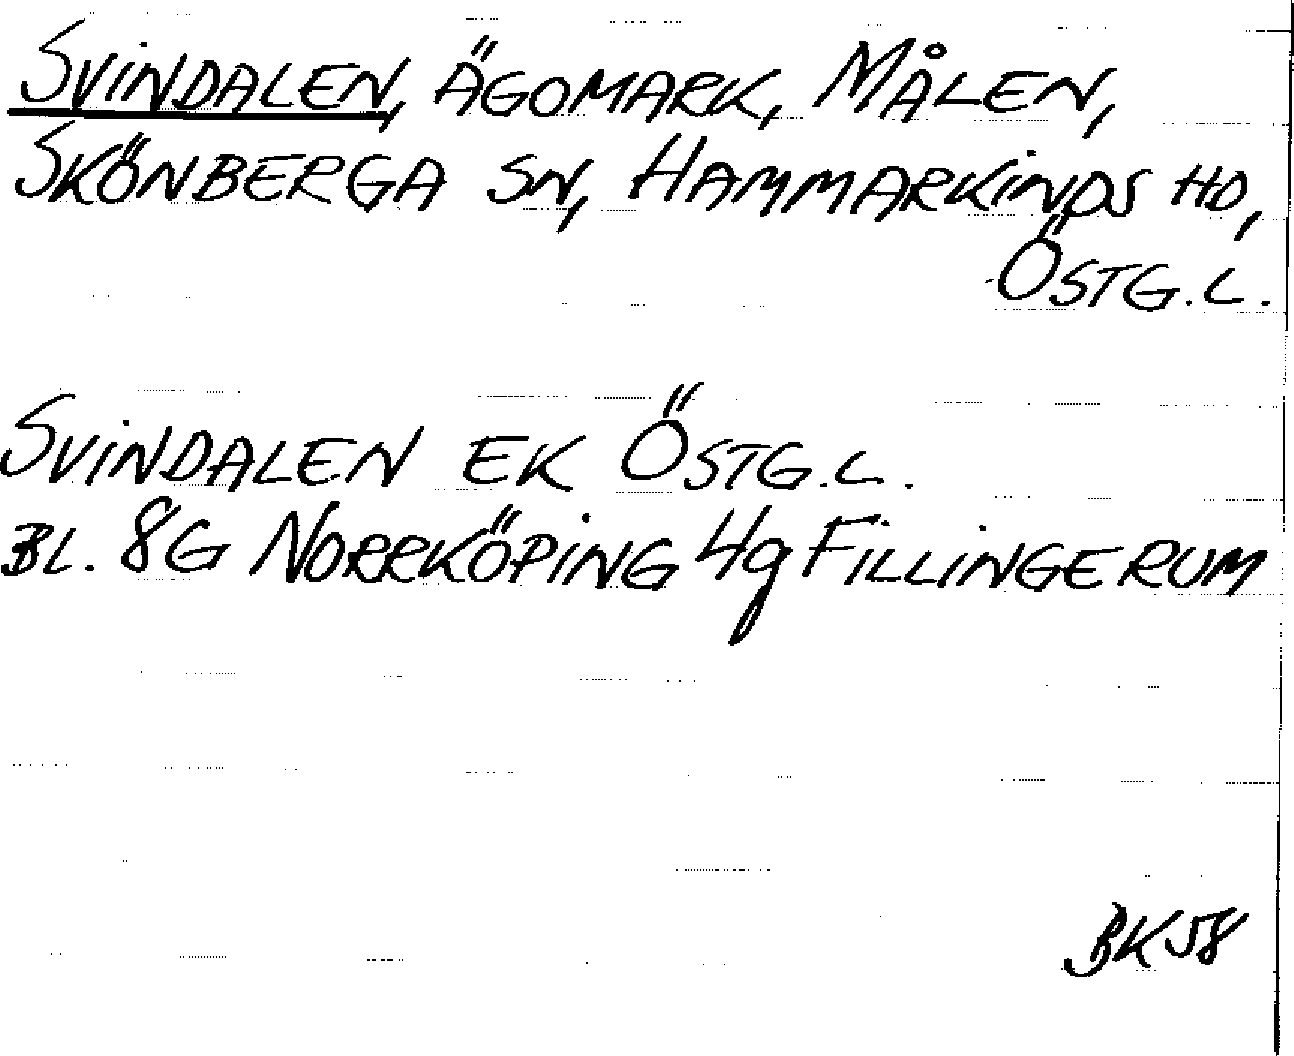 SVINDALEN, ÄGOMARK, MÅLEN,
SKÖNBERGA SN, HAMMARKINDS HD,
ÖSTG.L.
SVINDALEN EK ÖSTG.L.
BL. 8G NORRKÖPING 4g FILLINGERUM
BK58